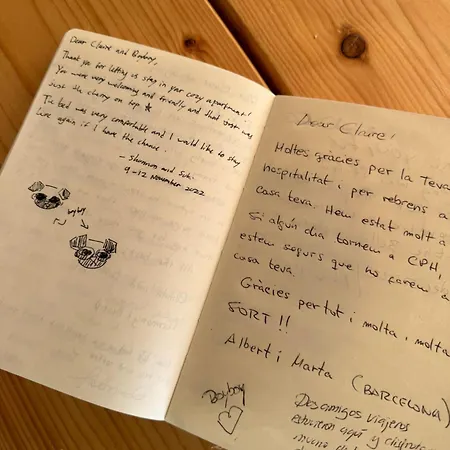 Dear Claire and Boyboy,
Thank you for letting us stay in your cozy apartment!
You were very welcoming and friendly and that was
just the cherry on top ★
The bed was very comfortable and I would like to stay
here again if I have the chance.
- Shannon and
9-12 November 2022
Dear Claire!
Moltes gràcies per la Teva
hospitalitat i per rebre'ns a
casa teva. Hem estat molt a
Si algún dia tornem a CPH,
estem segurs que ho farem a
casa teva.
Gràcies per tot i molta, molta
SORT!!
Albert i Marta (BARCELONA)
Boyboy
Dos amigos viajeros
estuvieron aquí y